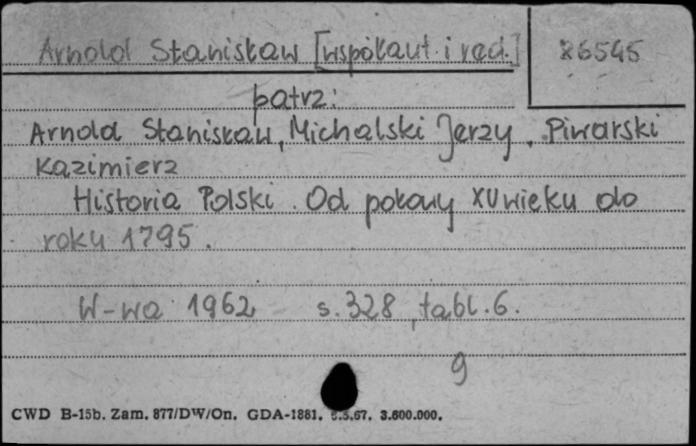 Arnold Stanisław [współaut. i red.] 86545
patrz:
Arnold Stanisław, Michalski Jerzy, Piwarski
Kazimierz
Historia Polski. Od połowy XV wieku do
roku 1795.
W-wa 1962 s. 328, tabl. 6.
9
CWD B-15b. Zam. 877/DW/On. GDA-1881. 5.5.67. 3.600.000.